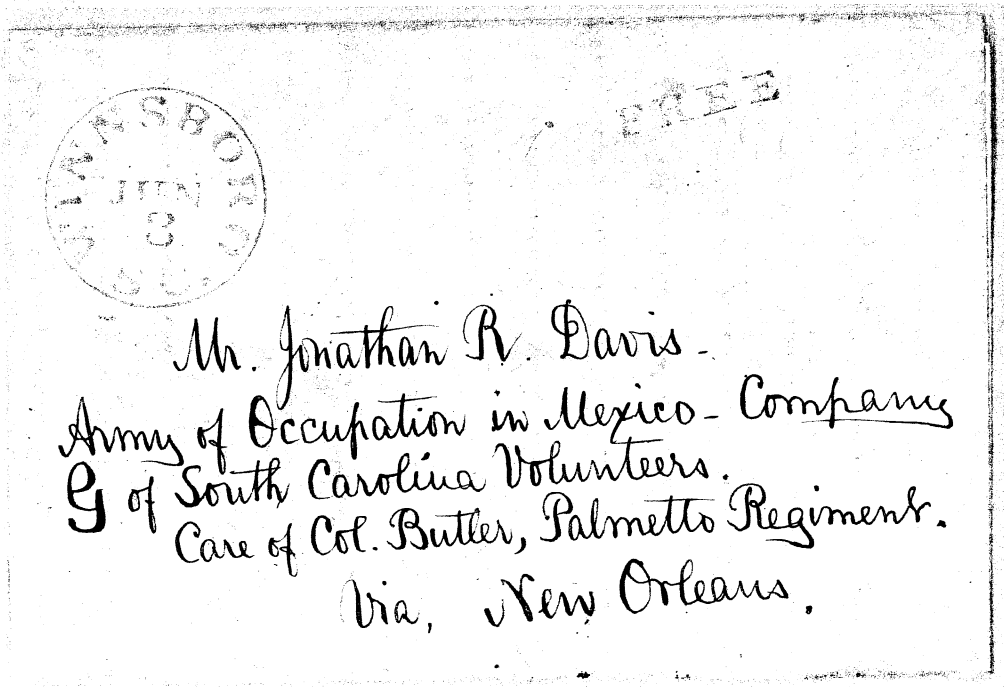 WINNSBORO
JUN
3
S.C.
FREE
Mr. Jonathan R. Davis -
Army of Occupation in Mexico - Company
G of South Carolina Volunteers.
Care of Col. Butler, Palmetto Regiment.
Via, New Orleans.